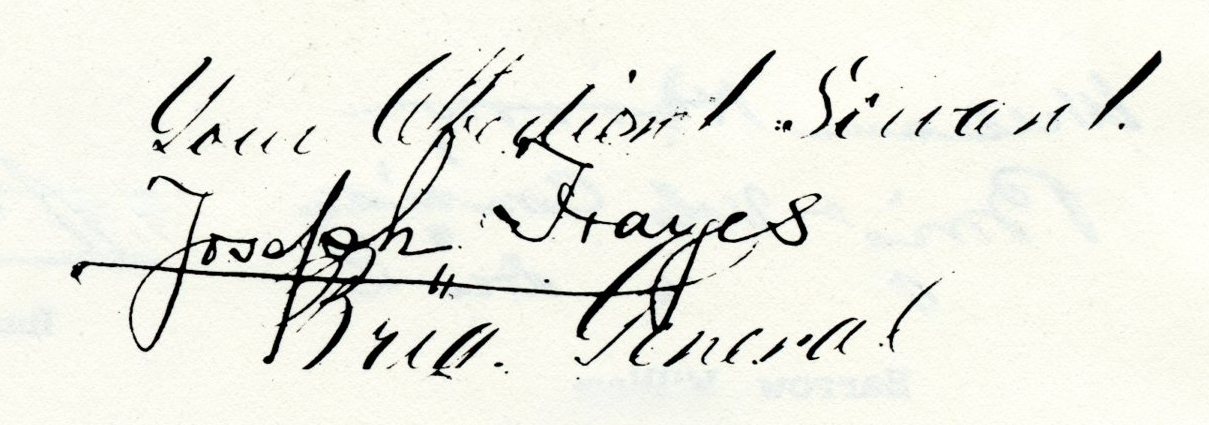 Your Obedient Servant.
Joseph Frayes
Brig. General